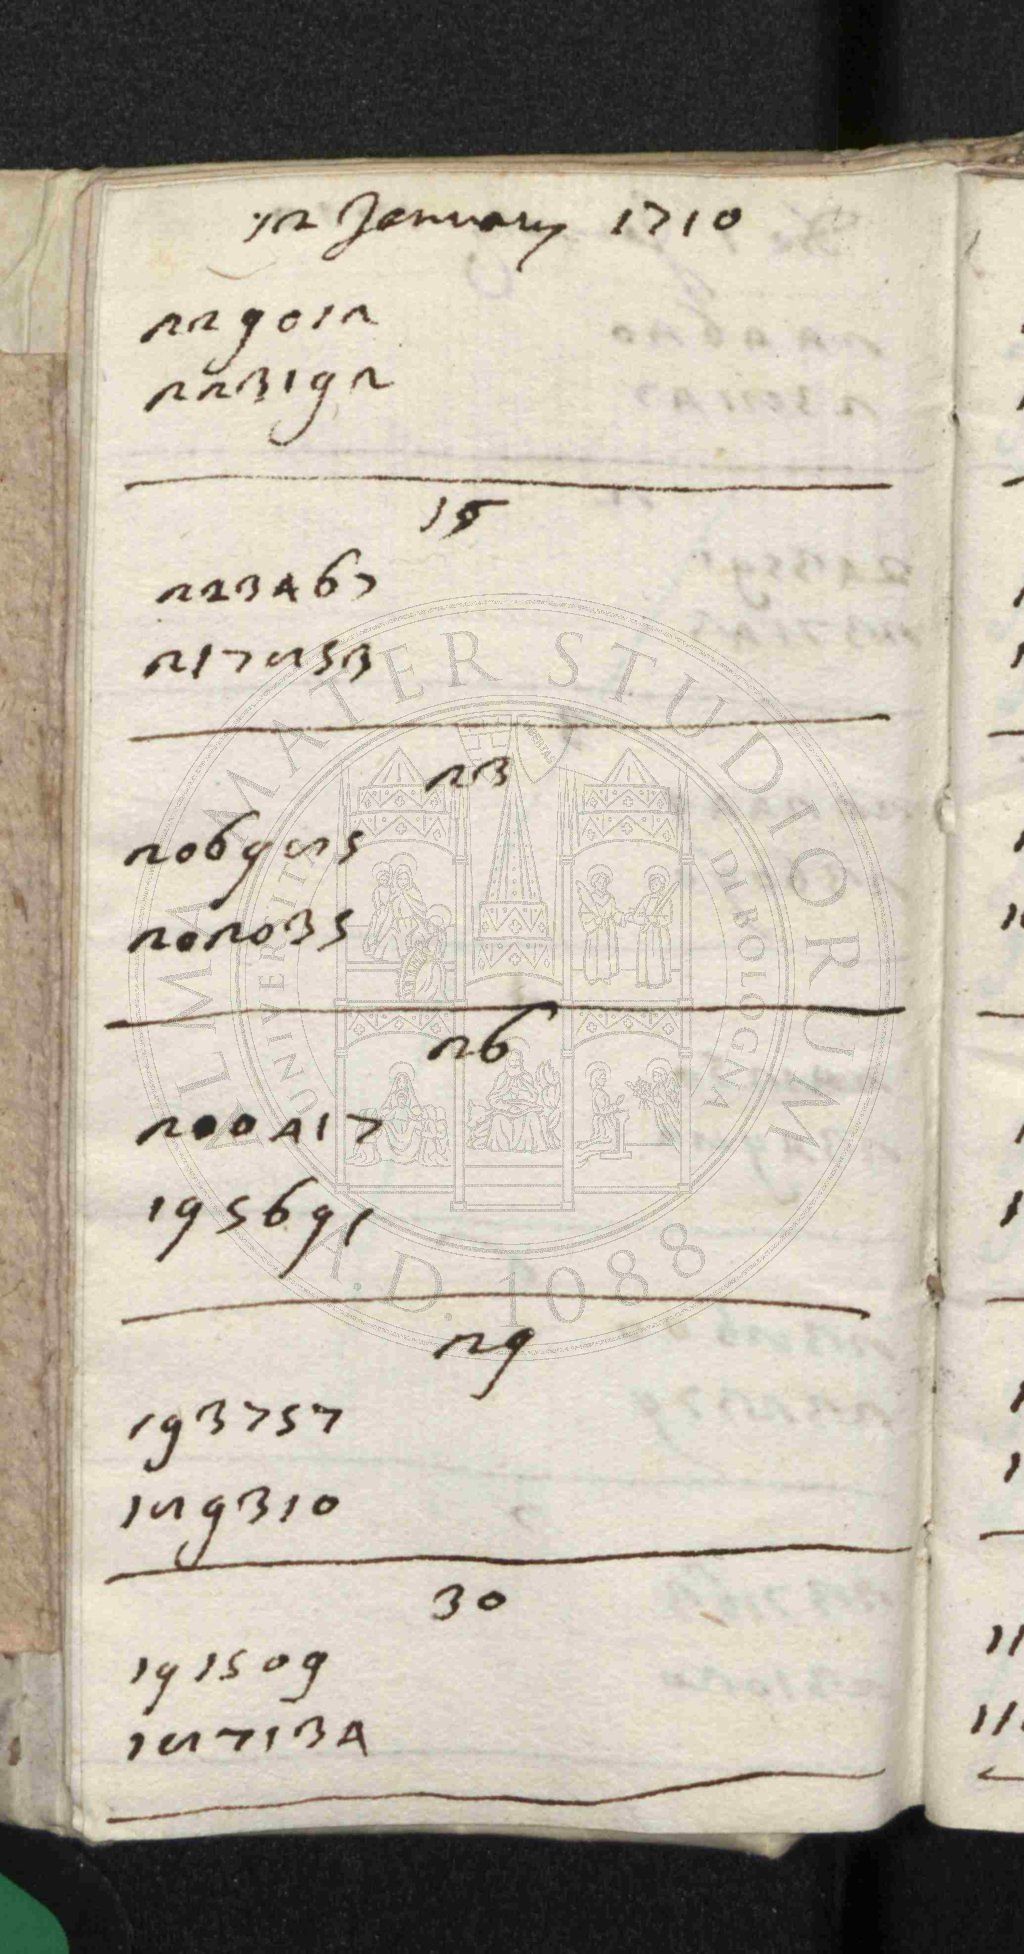 12 January 1710
229012
223192
15
223467
217853
23
206985
202035
26
200417
195691
29
193757
189310
30
191509
187134
ALMA MATER STUDIORUM
A.D. 1088
UNIVERSITÀ DI BOLOGNA